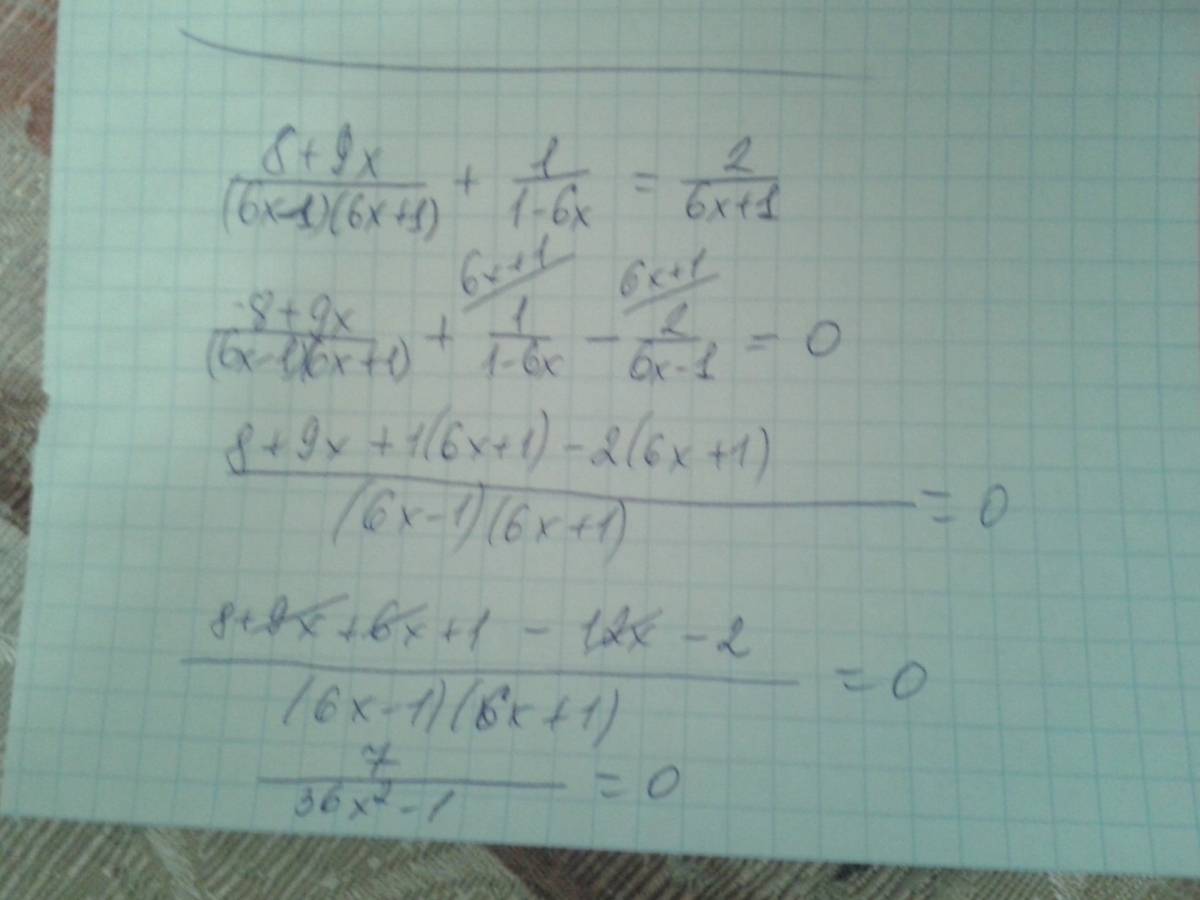 (8+9x)/((6x-1)(6x+1)) + 1/(1-6x) = 2/(6x+1)
6x+1 6x+1
(-8+9x)/((6x-1)(6x+1)) + 1/(1-6x) - 2/(6x-1) = 0
(8+9x+1(6x+1)-2(6x+1))/((6x-1)(6x+1)) = 0
(8+9x+6x+1-12x-2)/((6x-1)(6x+1)) = 0
7/(36x²-1) = 0